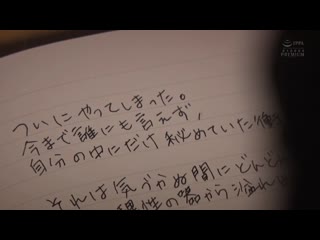 PREMIUM
ついにやってしまった。
今まで誰にも言えず、
自分の中にだけ秘めていた衝
それは気づかぬ間にどんど
理性の器から溢れ